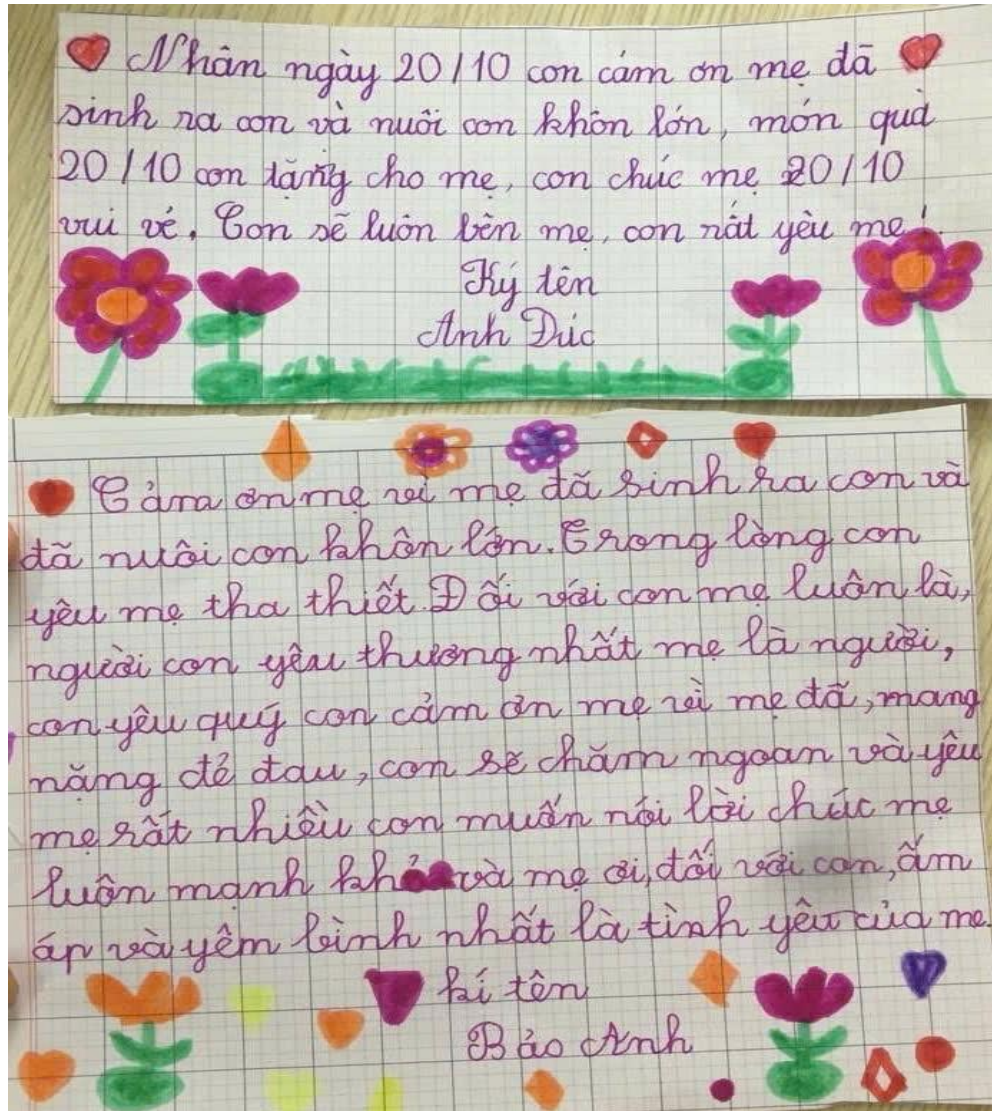 Nhân ngày 20/10 con cám ơn mẹ đã
sinh ra con và nuôi con khôn lớn, món quà
20/10 con tặng cho mẹ, con chúc mẹ 20/10
vui vẻ. Con sẽ luôn bên mẹ, con rất yêu mẹ!
Ký tên
Anh Đức
Cảm ơn mẹ vì mẹ đã sinh ra con và
đã nuôi con khôn lớn. Trong lòng con
yêu mẹ tha thiết. Đối với con mẹ luôn là,
người con yêu thương nhất mẹ là người,
con yêu quý con cảm ơn mẹ vì mẹ đã, mang
nặng đẻ đau, con sẽ chăm ngoan và yêu
mẹ rất nhiều con muốn nói lời chúc mẹ
luôn mạnh và mẹ ơi, đối với con, ấm
áp và yêm bình nhất là tình yêu của mẹ.
kí tên
Bảo Anh